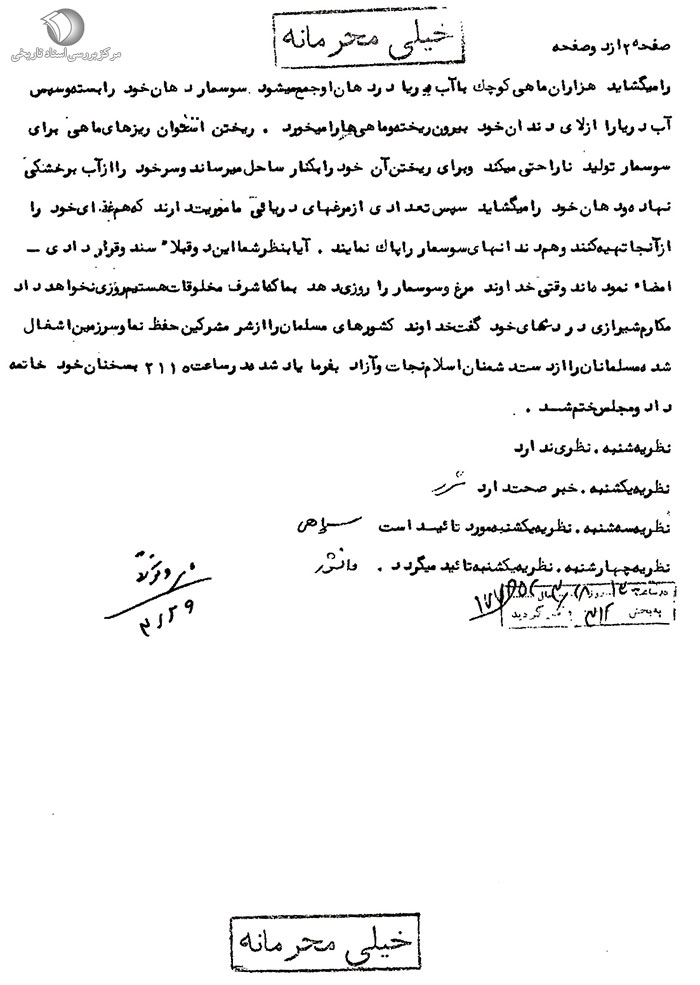 مرکز بررسی اسناد تاریخی
خیلی محرمانه
صفحه ۲ از دو صفحه
را میگشاید هزاران ماهی کوچك با آب دریا در دهان او جمع میشود سوسمار دهان خود را بسته و سپس
آب دریا را از لای دندان خود بیرون ریخته و ماهی ها را میخورد . ریختن استخوان ریزهای ماهی برای
سوسمار تولید ناراحتی میکند و برای ریختن آن خود را بکنار ساحل میرساند و سر خود را از آب بر خشکی
نهاده دهان خود را میگشاید سپس تعدادی از مرغهای دریائی ماموریت دارند که هم غذای خود را
از آنجا تهیه کنند و هم دندانهای سوسمار را پاك نمایند . آیا بنظر شما این دو قبلاً سند و قراردادی –
امضاء نموده اند وقتی خداوند مرغ و سوسمار را روزی دهد بما که اشرف مخلوقات هستیم روزی نخواهد داد
مکارم شیرازی در دعای خود گفت خداوند کشورهای مسلمان را از شر مشرکین حفظ نما و سرزمین اشغال
شده مسلمانان را از دست دشمنان اسلام نجات و آزاد بفرما یاد شده در ساعت ۲۱۱۰ بسخنان خود خاتمه
داد و مجلس ختم شد .
نظریه شنبه . نظری ندارد
نظریه یکشنبه . خبر صحت دارد
نظریه سه شنبه . نظریه یکشنبه مورد تائید است
نظریه چهارشنبه . نظریه یکشنبه تائید میگردد .
در ساعت روز سال
به بخش ۳۱۲ گردید
۳/۲۹
خیلی محرمانه